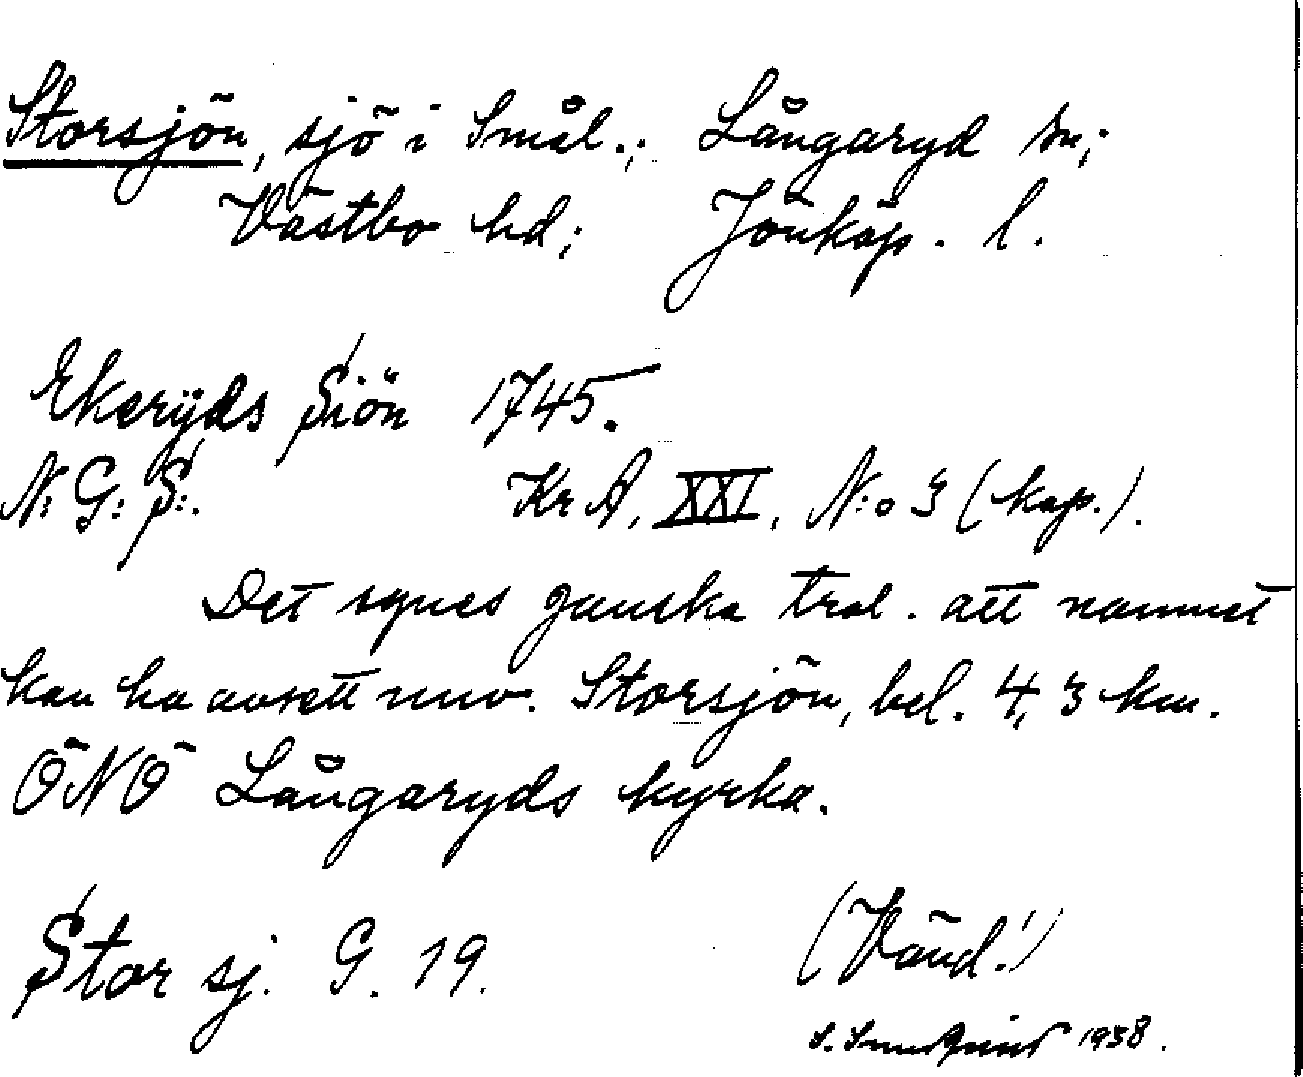 Storsjön, sjö i Smål.; Långaryd sn;
Västbo hd; Jönköp. l.
Ekerÿds Siön 1745.
N: G: S:. Kr A, XXI, N:o 3 (kop.).
Det synes ganska trol. att namnet
kan ha avsett nuv. Storsjön, bel. 4,3 km.
ÖNÖ Långaryds kyrka.
Stor sj. G. 19. (Vänd!)
S. 1938.